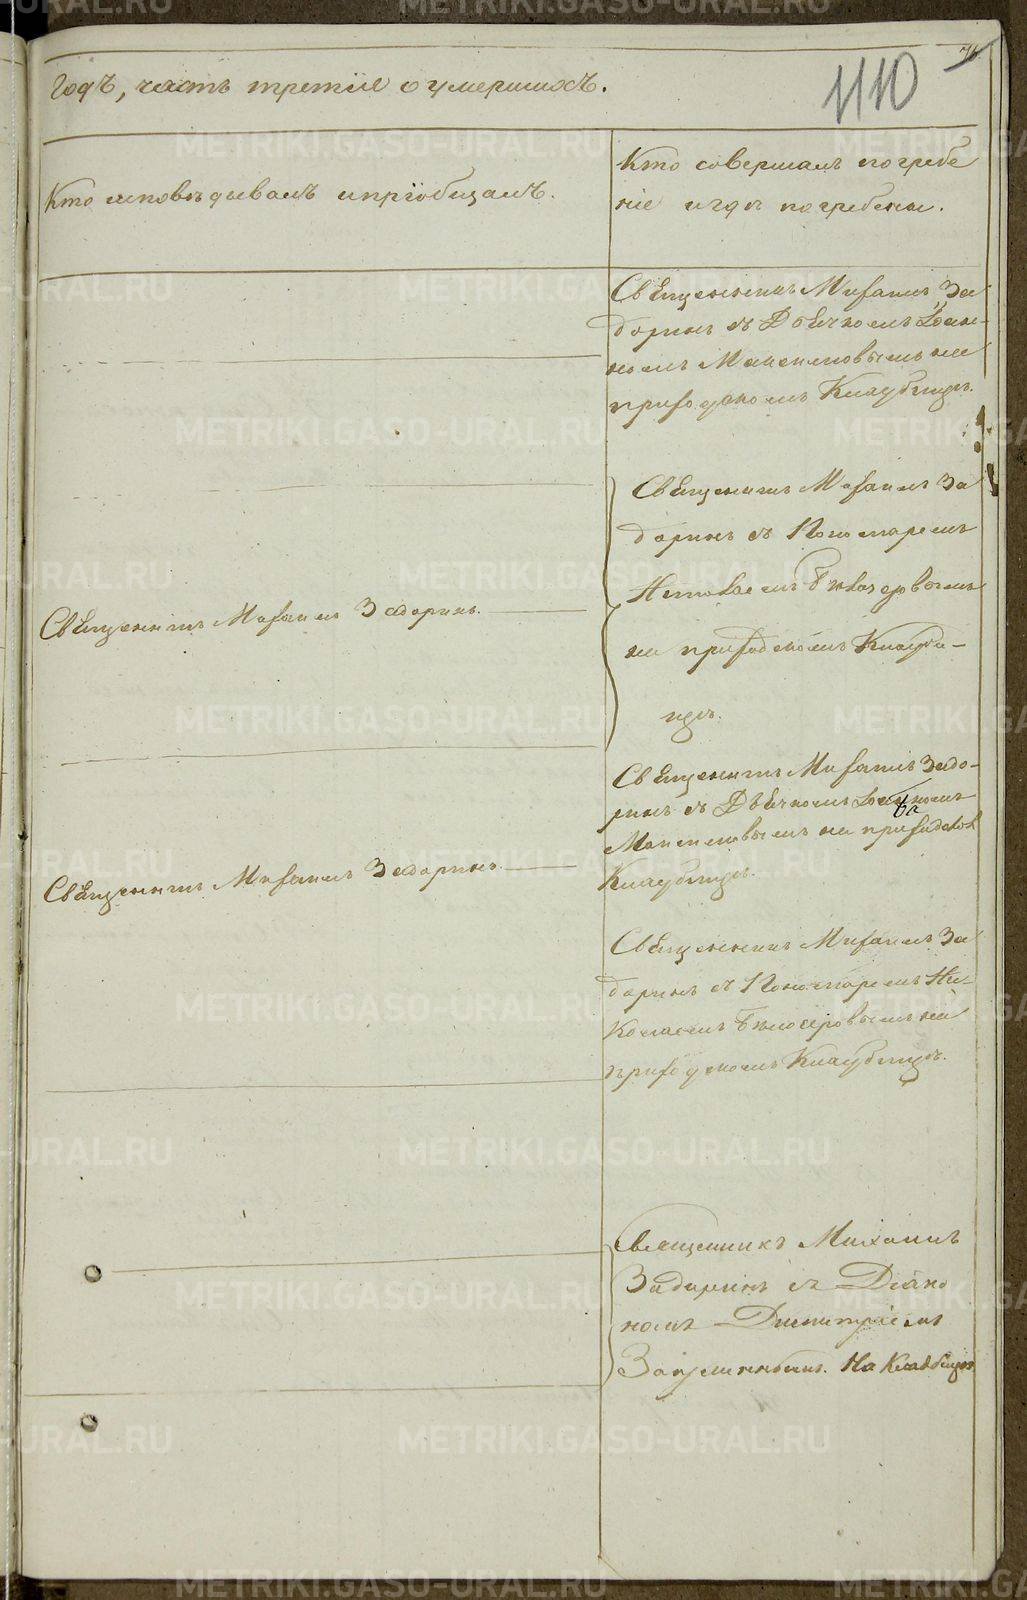 Годъ, часть третiе о умершихъ.
110
Кто исповѣдывалъ и прiобщалъ.
Кто совершалъ погребе
нiе и гдѣ погребены.
Священникъ Михаилъ За
доринъ съ Дьячкомъ Iоан-
номъ Максимовымъ на
приходскомъ Кладбищѣ.
Священникъ Михаилъ За
доринъ съ Пономаремъ
Николаемъ
на приходскомъ Кладби-
щѣ.
Священникъ Михаилъ Задоринъ.
Священникъ Михаилъ Задо-
ринъ съ Дьячкомъ Iоанномъ
Максимовымъ на приходском
Кладбищѣ.
Священникъ Михаилъ Задоринъ.
Священникъ Михаилъ За
доринъ съ Пономаремъ Ни-
колаемъ Бѣлозеровымъ на
приходскомъ Кладбищѣ.
Священникъ Михаилъ
Задоринъ съ Дiако
номъ Димитрiемъ
На Кладбищѣ
METRIKI.GASO-URAL.RU